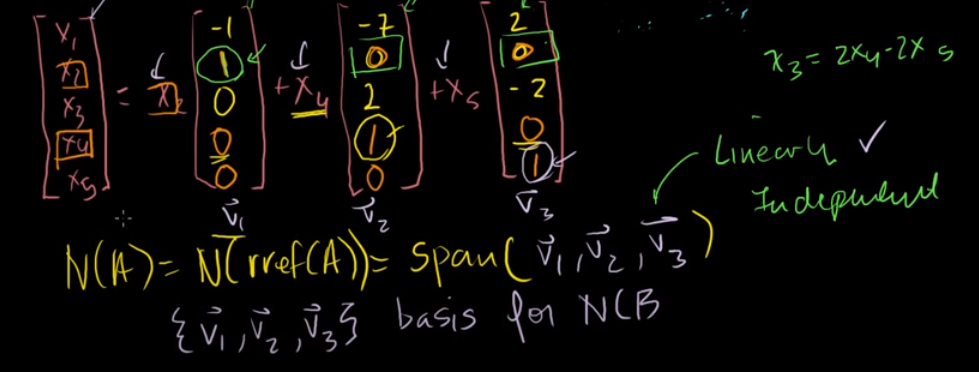 [x₁ x₂ x₃ x₄ x₅] = x₂ [-1 1 0 0 0] + x₄ [-7 0 2 1 0] + x₅ [2 0 -2 0 1]
x₃ = 2x₄ - 2x₅
v⃗₁ v⃗₂ v⃗₃
Linearly
Independent
N(A) = N(rref(A)) = span(v⃗₁, v⃗₂, v⃗₃)
{v⃗₁, v⃗₂, v⃗₃} basis for N(B